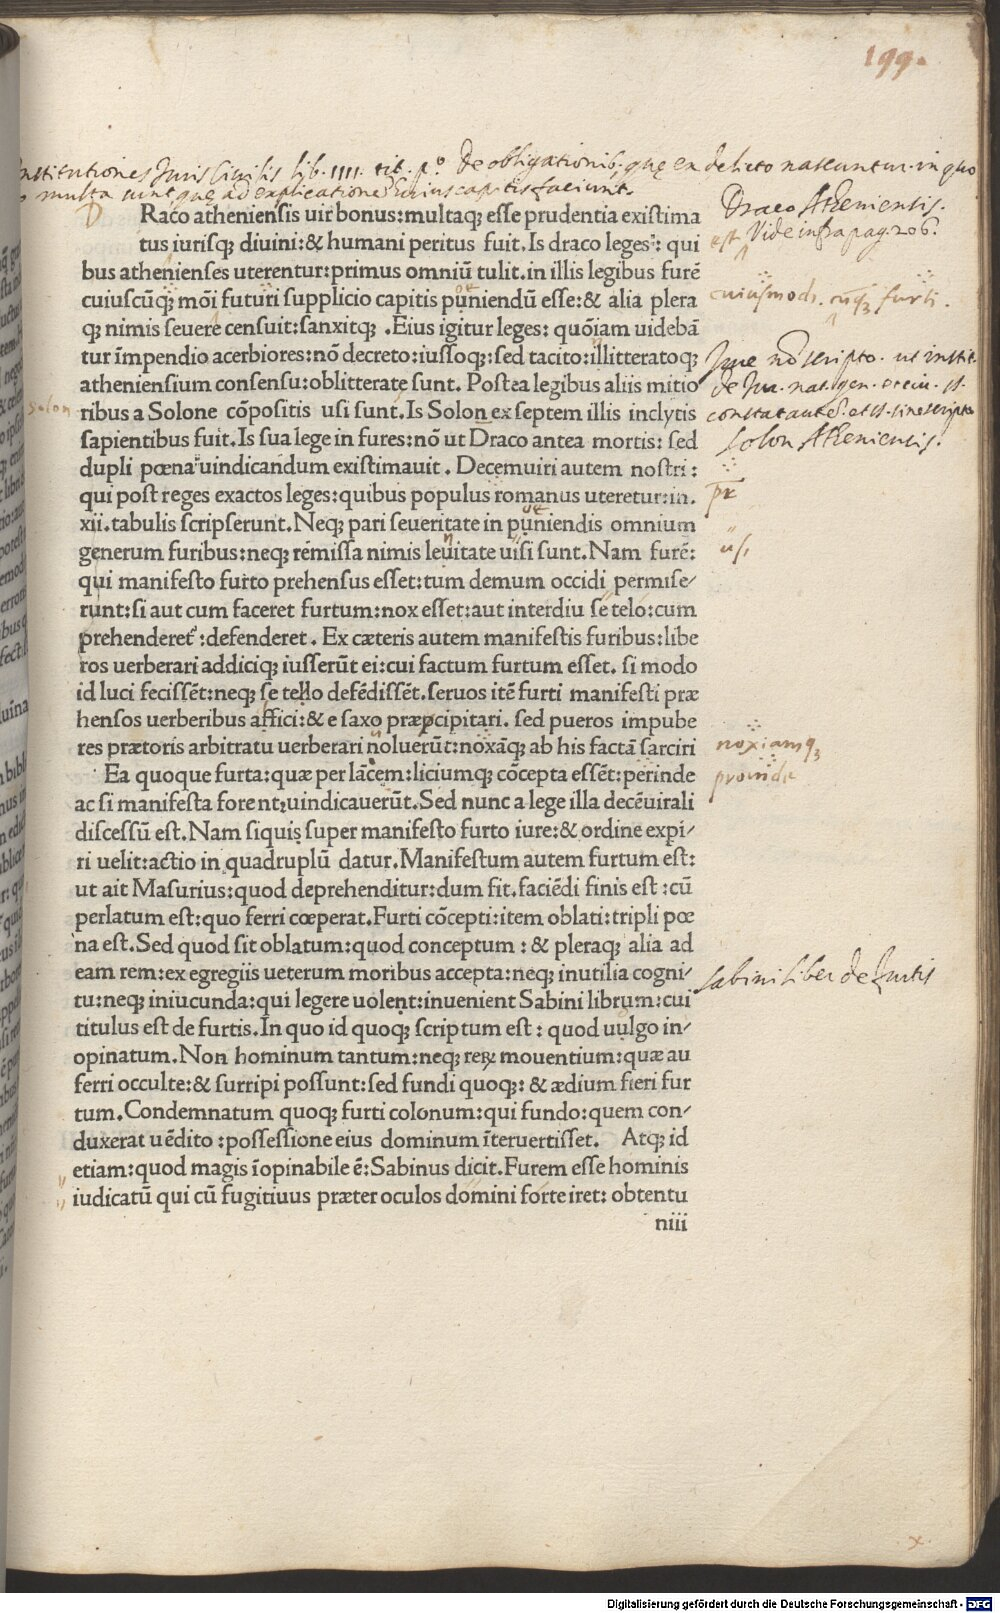 199.
Institutiones Juris Civilis lib. IIII. tit. p.º De obligationib. quę ex delicto nascuntur. in quo
multa sunt, quę ad explicationē huius cap. satisfaciunt.
D Raco atheniensis uir bonus: multaqꝫ esse prudentia existima
Draco Atheniensis.
tus iurisqꝫ diuini: & humani peritus fuit. Is draco leges: qui
est Vide infra pag. 206.
bus athenienses uterentur: primus omniū tulit. in illis legibus furē
cuiuscūqꝫ mōi futuri supplicio capitis puniendū esse: & alia plera
cuiusmodi. cuqꝫ furti.
qꝫ nimis seuere censuit: sanxitqꝫ . Eius igitur leges: quōiam uidebā
tur īmpendio acerbiores: nō decreto: iussoqꝫ: sed tacito: illitteratoqꝫ
Jure nō scripto. ut instit.
atheniensium consensu: oblitterate sunt. Postea legibus aliis mitio
de Ju. nat. gen. et ciu. §.
solon
ribus a Solone cōpositis usi sunt. Is Solon ex septem illis inclytis
constat autē. et §. sine scripto
sapientibus fuit. Is sua lege in fures: nō ut Draco antea mortis: sed
Solon Atheniensis.
dupli pœna uindicandum existimauit . Decemuiri autem nostri:
qui post reges exactos leges: quibus populus romanus uteretur: in.
pr
xii. tabulis scripserunt. Neqꝫ pari seueritate in puniendis omnium
generum furibus: neqꝫ remissa nimis leuitate uisi sunt. Nam furē:
usi
qui manifesto furto prehensus esset: tum demum occidi permise/
runt: si aut cum faceret furtum: nox esset: aut interdiu se telo: cum
prehenderet᷑: defenderet . Ex cæteris autem manifestis furibus: libe
ros uerberari addiciqꝫ iusserūt ei: cui factum furtum esset. si modo
id luci fecissēt: neqꝫ se tello defēdissēt. seruos itē furti manifesti præ
hensos uerberibus affici: & e saxo præpcipitari. sed pueros impube
res prætoris arbitratu uerberari noluerūt: noxāqꝫ ab his factā sarciri
noxiamqꝫ
Ea quoque furta: quæ per lācem: liciumqꝫ cōcepta essēt: perinde
proinde
ac si manifesta forent: uindicauerūt. Sed nunc a lege illa decēuirali
discessū est. Nam siquis super manifesto furto iure: & ordine expi/
ri uelit: actio in quadruplū datur. Manifestum autem furtum est:
ut ait Masurius: quod deprehenditur: dum fit. faciēdi finis est : cū
perlatum est: quo ferri cœperat. Furti cōcepti: item oblati: tripli pœ
na est. Sed quod sit oblatum: quod conceptum : & pleraqꝫ alia ad
eam rem: ex egregiis ueterum moribus accepta: neqꝫ inutilia cogni/
Sabini liber de furtis
tu: neqꝫ iniucunda: qui legere uolent: inuenient Sabini librum: cui
titulus est de furtis. In quo id quoqꝫ scriptum est : quod uulgo in/
opinatum. Non hominum tantum: neqꝫ reꝝ mouentium: quæ au
ferri occulte: & surripi possunt: sed fundi quoqꝫ: & ædium fieri fur
tum. Condemnatum quoqꝫ furti colonum: qui fundo: quem con/
duxerat uēdito : possessione eius dominum īteruertisset. Atqꝫ id
etiam: quod magis īopinabile ē: Sabinus dicit. Furem esse hominis
iudicatū qui cū fugitiuus præter oculos domini forte iret: obtentu
niii
x
Digitalisierung gefördert durch die Deutsche Forschungsgemeinschaft - DFG